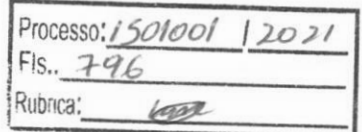 Processo: 1501001 | 2021
Fls.. 796
Rubrica: